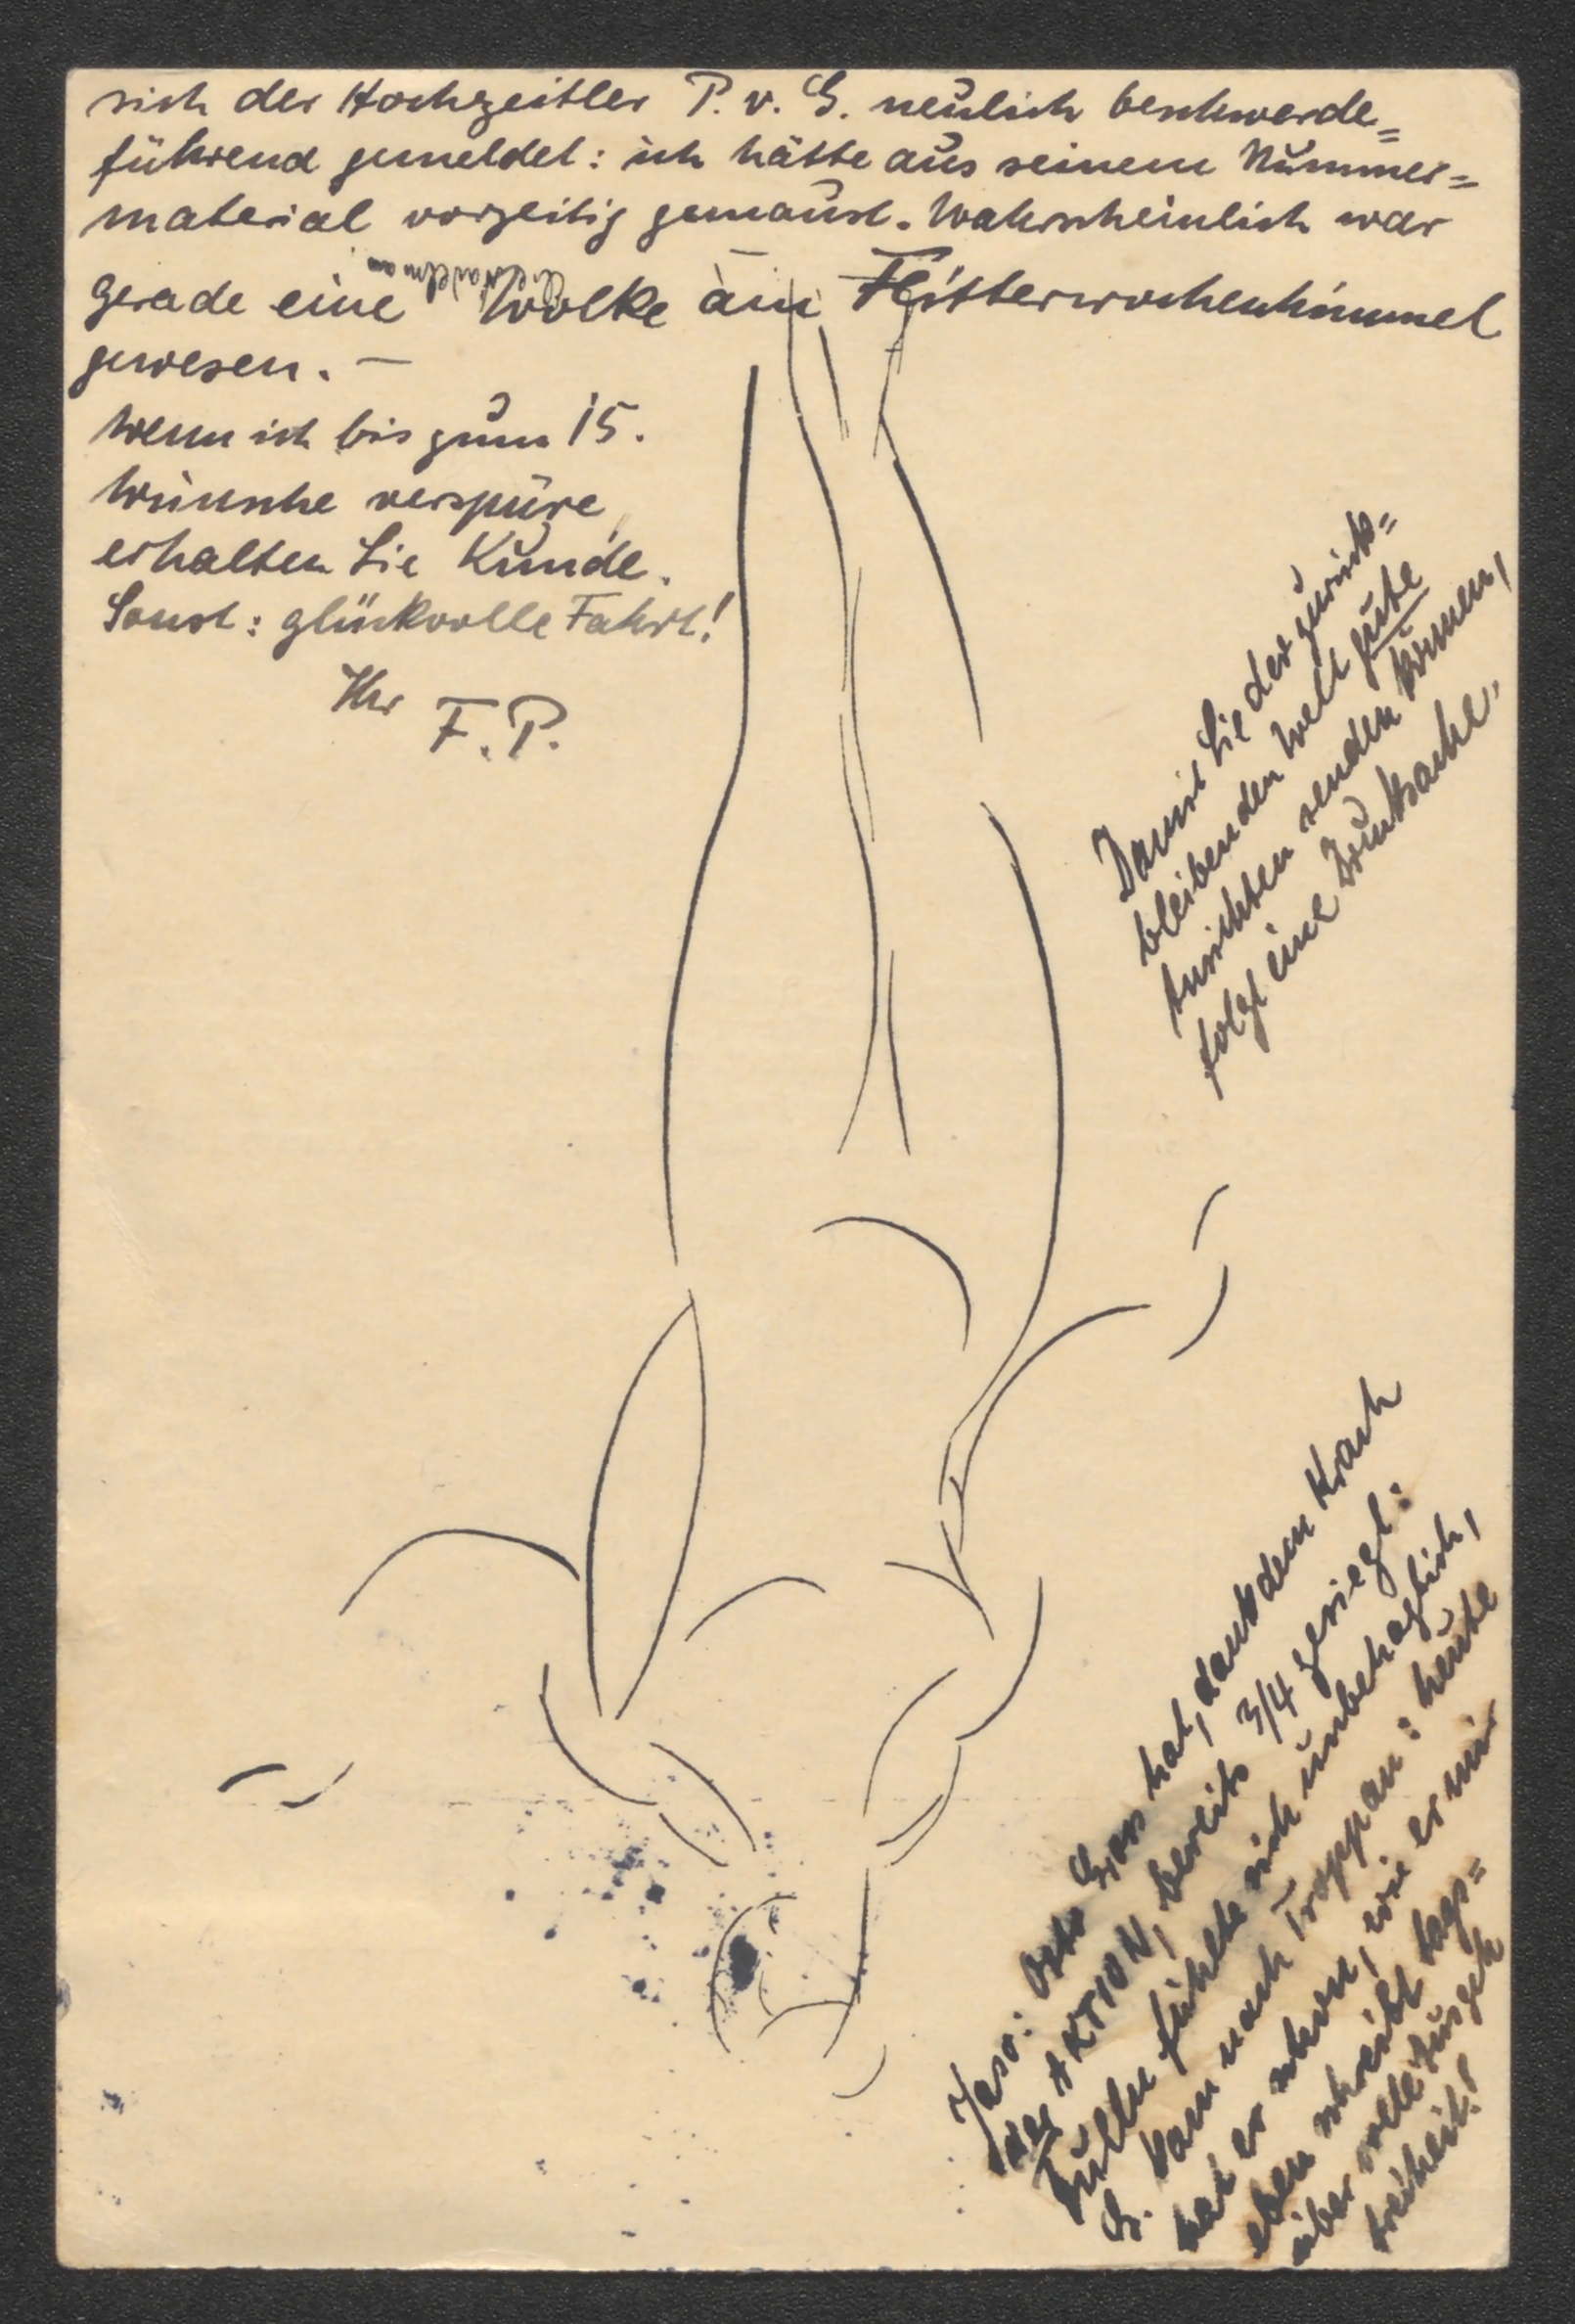 sich der Hochzeitler P. v. G. neulich beschwerde=
führend gemeldet: ich hätte aus seinem Nummer=
material vorzeitig gemaust. Wahrscheinlich war
gerade eine Wolke am Flitterwochenhimmel
gewesen. —
Wenn ich bis zum 15.
Wünsche verspüre,
erhalten Sie Kunde.
Sonst: glückvolle Fahrt!
Ihr F.P.
Damit Sie der zurück=
bleibenden Welt gute
Ansichten senden können,
folgt eine Drucksache.
Jaso: Otto Gross hat, dank dem Krach
der AKTION, bereits 3/4 gesiegt:
Tulln fühlte sich unbehaglich,
G. kam nach Troppau: heute
hat er schon, wie er mir
eben schreibt tags=
über volle Ausgeh
freiheit!